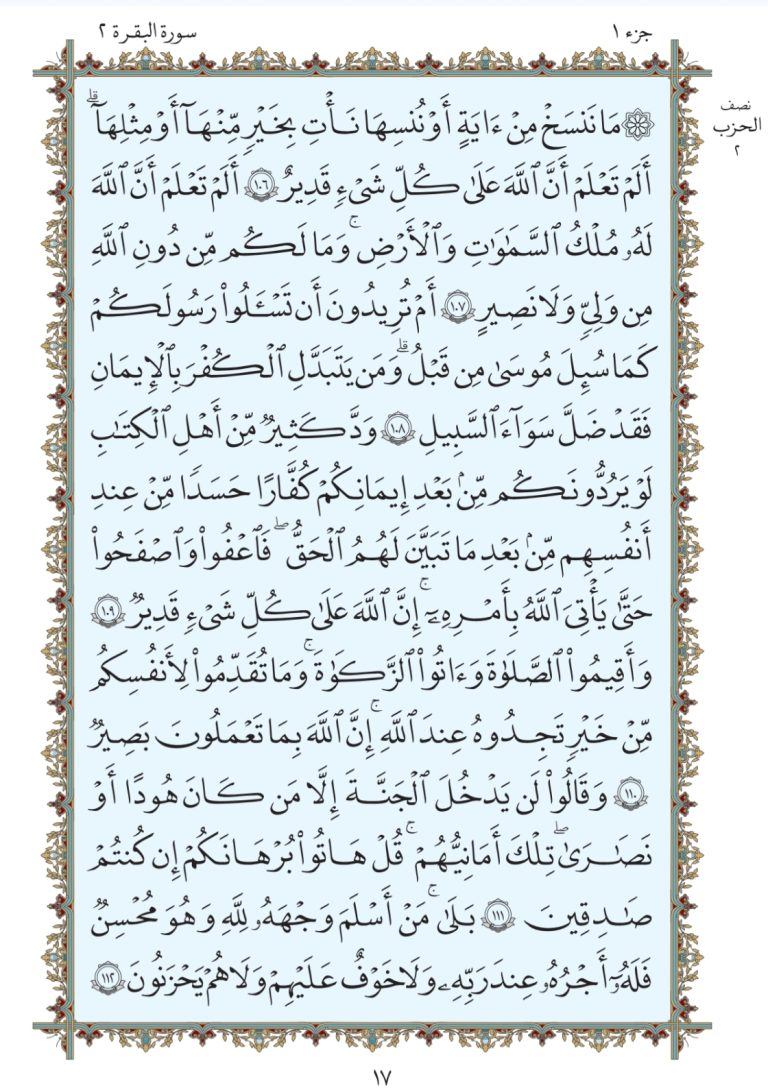 جزء ١
سورة البقرة ٢
نصف
الحزب
٢
۞ مَا نَنسَخۡ مِنۡ ءَايَةٍ أَوۡ نُنسِهَا نَأۡتِ بِخَيۡرٖ مِّنۡهَآ أَوۡ مِثۡلِهَآۗ
أَلَمۡ تَعۡلَمۡ أَنَّ ٱللَّهَ عَلَىٰ كُلِّ شَيۡءٖ قَدِيرٌ ١٠٦ أَلَمۡ تَعۡلَمۡ أَنَّ ٱللَّهَ
لَهُۥ مُلۡكُ ٱلسَّمَٰوَٰتِ وَٱلۡأَرۡضِۚ وَمَا لَكُم مِّن دُونِ ٱللَّهِ
مِن وَلِيّٖ وَلَا نَصِيرٍ ١٠٧ أَمۡ تُرِيدُونَ أَن تَسۡـَٔلُواْ رَسُولَكُمۡ
كَمَا سُئِلَ مُوسَىٰ مِن قَبۡلُۗ وَمَن يَتَبَدَّلِ ٱلۡكُفۡرَ بِٱلۡإِيمَٰنِ
فَقَدۡ ضَلَّ سَوَآءَ ٱلسَّبِيلِ ١٠٨ وَدَّ كَثِيرٞ مِّنۡ أَهۡلِ ٱلۡكِتَٰبِ
لَوۡ يَرُدُّونَكُم مِّنۢ بَعۡدِ إِيمَٰنِكُمۡ كُفَّارًا حَسَدٗا مِّنۡ عِندِ
أَنفُسِهِم مِّنۢ بَعۡدِ مَا تَبَيَّنَ لَهُمُ ٱلۡحَقُّۖ فَٱعۡفُواْ وَٱصۡفَحُواْ
حَتَّىٰ يَأۡتِيَ ٱللَّهُ بِأَمۡرِهِۦٓۚ إِنَّ ٱللَّهَ عَلَىٰ كُلِّ شَيۡءٖ قَدِيرٞ ١٠٩
وَأَقِيمُواْ ٱلصَّلَوٰةَ وَءَاتُواْ ٱلزَّكَوٰةَۚ وَمَا تُقَدِّمُواْ لِأَنفُسِكُم
مِّنۡ خَيۡرٖ تَجِدُوهُ عِندَ ٱللَّهِۚ إِنَّ ٱللَّهَ بِمَا تَعۡمَلُونَ بَصِيرٞ
١١٠ وَقَالُواْ لَن يَدۡخُلَ ٱلۡجَنَّةَ إِلَّا مَن كَانَ هُودًا أَوۡ
نَصَٰرَىٰۗ تِلۡكَ أَمَانِيُّهُمۡۗ قُلۡ هَاتُواْ بُرۡهَٰنَكُمۡ إِن كُنتُمۡ
صَٰدِقِينَ ١١١ بَلَىٰۚ مَنۡ أَسۡلَمَ وَجۡهَهُۥ لِلَّهِ وَهُوَ مُحۡسِنٞ
فَلَهُۥٓ أَجۡرُهُۥ عِندَ رَبِّهِۦ وَلَا خَوۡفٌ عَلَيۡهِمۡ وَلَا هُمۡ يَحۡزَنُونَ ١١٢
١٧